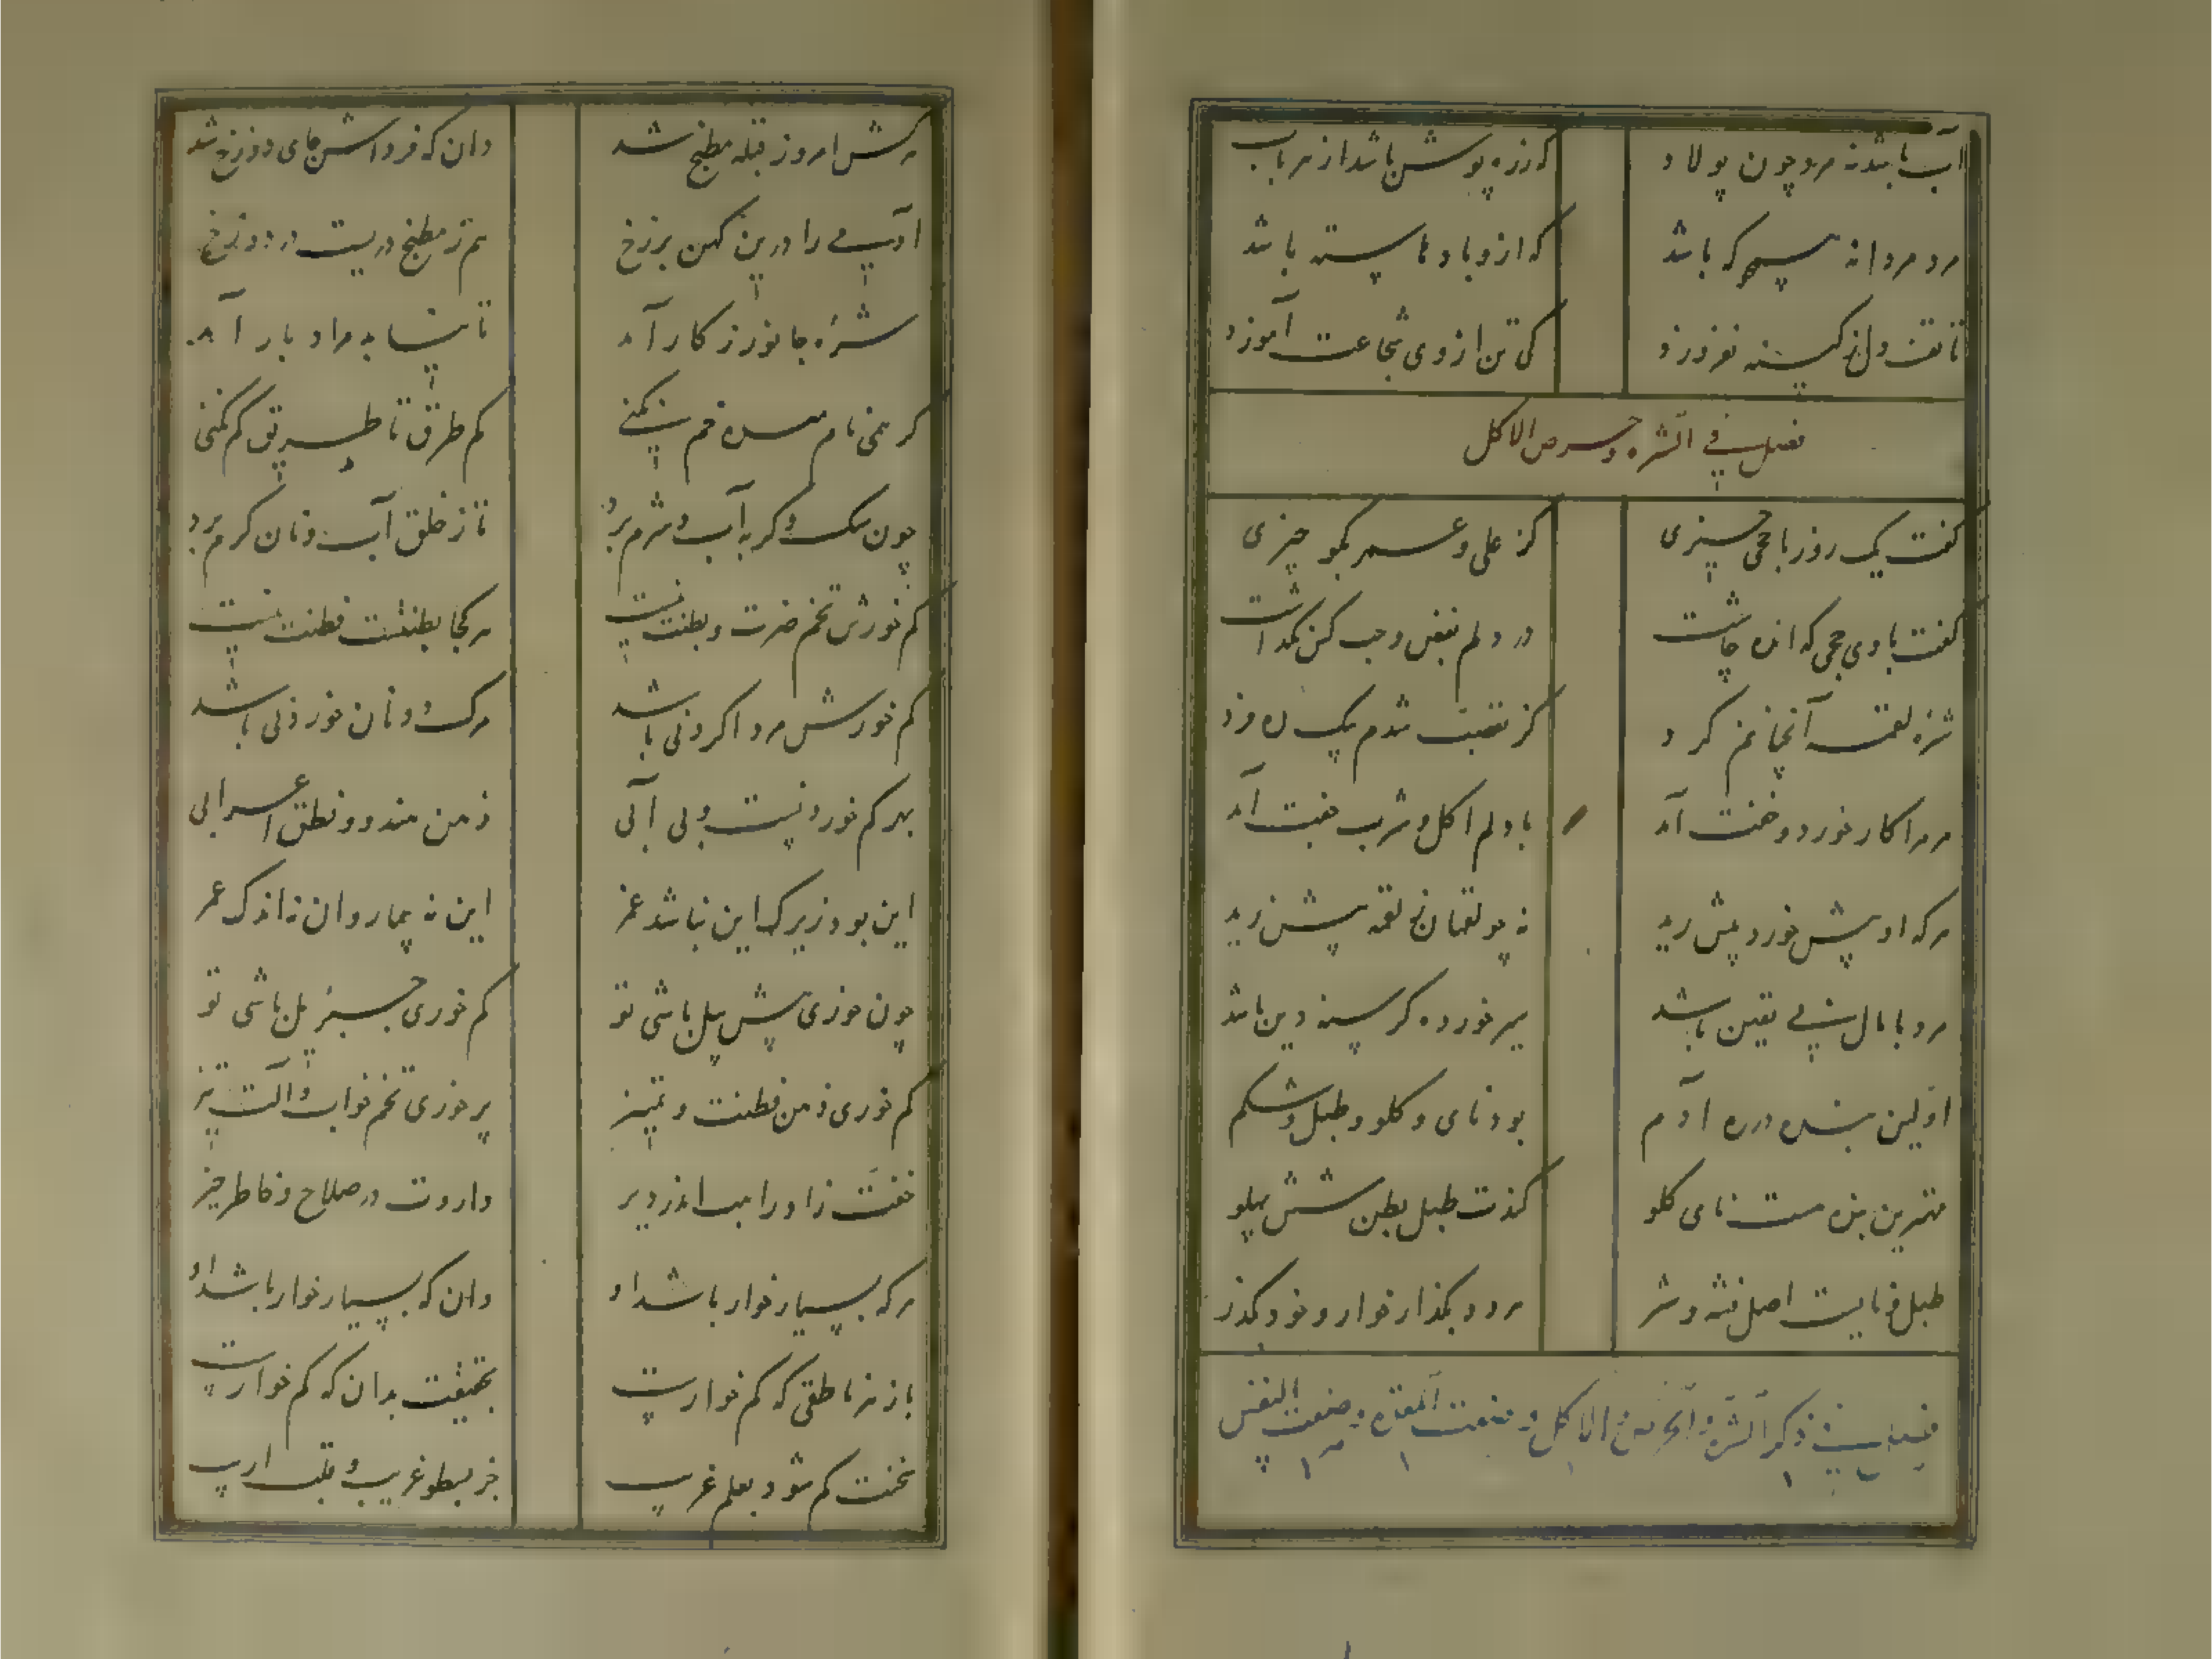 آب باشد نه مرد چون پولاد که زره پوشش باشد از مر باد
مرد مردانه همچو که باشد که ازو بادها سته باشد
تا تفت دل ز کینه نفروزد کی تن از وی شجاعت آموزد
فصل فی الشره و حرص الاکل
گفت یک روز با جحی حیزی کز علی و عمر بگو چیزی
گفت با وی جحی که انده چاشت در دلم بغض و حب کس نگذاشت
شره لقمه آنچنانم کرد کز تعصب شدم یک ره فرد
مر مرا کار خورد و خفت آمد با دلم اکل و شرب جفت آمد
هرکه او بیش خورد بیش رید نه چو لقمان ز لقمه بیش زید
مرد با مال بی یقین باشد سیر خورده گرسنه دین باشد
اولین بند در ره آدم بود نای و گلو و طبل و شکم
مهترین بند هست نای گلو کندت طبل بطن شش پهلو
طبل و نایست اصل فتنه و شر مرد بگذار خوار و خود بگذر
فصل فی ذکر الشره و الحرص الاکل و صفت النفس
هرکش امروز قبله مطبخ شد وان که فرداش جای دوزخ شد
آدمی را درین کهن برزخ هم ز مطبخ دریست در دوزخ
شره جانور ز کار آمد تا به مراد بار آمد
چون سگ و گربه آب و شرم برد تا ز خلق آب و نان گرم برد
کم خورش تخم ضرت و بطنت نیست هرکجا بطنتست فطنت نیست
کم خورش مرد اگر ونی باشد مرگ دونان خوردنی باشد
بهر کم خوردنیست وبی آبی ذهن هندو و نطق اعرابی
این بود زیرک این نباشد غمر این نه بیمار وان نه اندک عمر
چون خوری بیش پیل باشی تو کم خوری جبرئیل باشی تو
کم خوری ذهن و فطنت و تمییز پرخوری تخم خواب و آلت تیز
داروت در صلاح و خاطر خیز
هرکه بسیار خوار باشد او وان که بسیار خوار باشد او
باز هر ناطقی که کم خوارست بحقیقت بدان که کم خوارست
بخت کم شود بعلم غریب